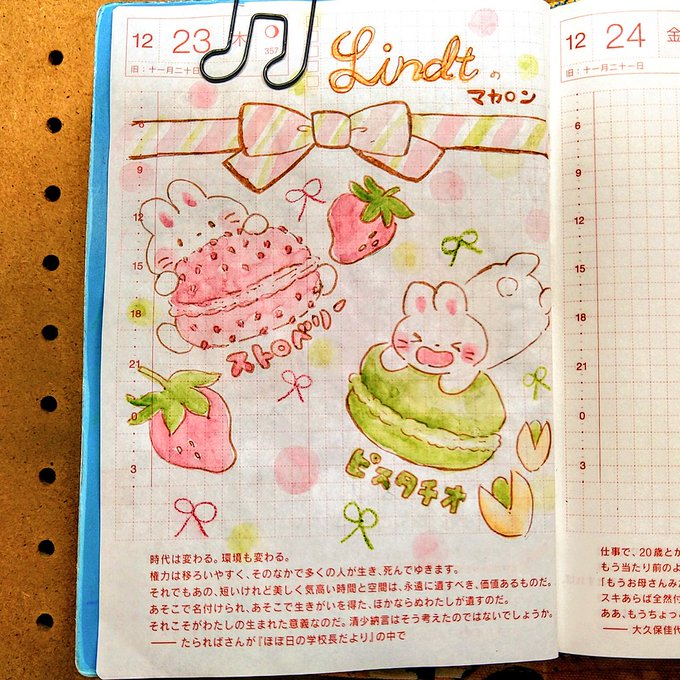 12 23 木 357
旧:十一月二十日
Lindtの
マカロン
6
9
12
15
18
21
0
3
ストロベリー
ピスタチオ
時代は変わる。環境も変わる。
権力は移ろいやすく、そのなかで多くの人が生き、死んでゆきます。
それでもあの、短いけれど美しく気高い時間と空間は、永遠に遺すべき、価値あるものだ。
あそこで名付けられ、あそこで生きがいを得た、ほかならぬわたしが遺すのだ。
それこそがわたしの生まれた意義なのだ。清少納言はそう考えたのではないでしょうか。
── たらればさんが『ほぼ日の学校長だより』の中で
12 24 金
旧:十一月二十一日
6
9
12
15
18
21
0
3
仕事で、20歳とか
もう当たり前のよ
「もうお母さんみた
スキあらば全然付
ああ、もうちょっと
── 大久保佳代